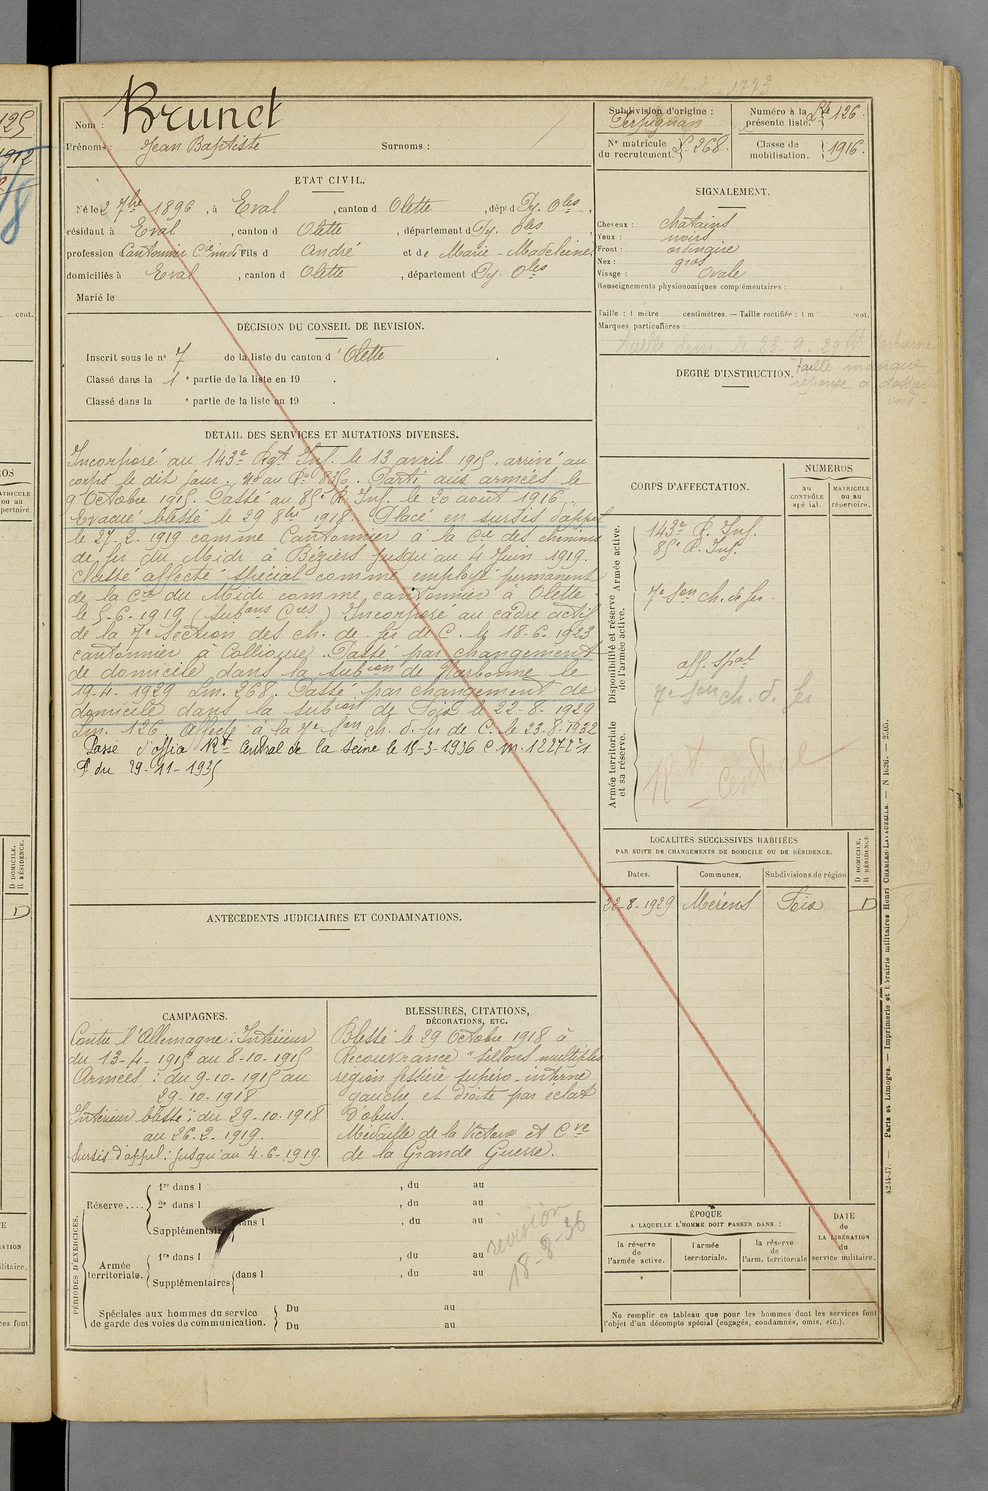 Nom : Brunet
Prénoms : Jean Baptiste Surnoms :
Subdivision d'origine : Perpignan
Numéro à la présente liste. 126
N° matricule du recrutement. 268
Classe de mobilisation. 1916
ÉTAT CIVIL.
Né le 2 7bre 1896, à Eval, canton d Olette, dép d Py. Oles,
résidant à Eval, canton d Olette, département d Py. Oles
profession Cantonnier Cie midi Fils d André et de Marie-Madeleine
domiciliés à Eval, canton d Olette, département d Py. Oles
Marié le
SIGNALEMENT.
Cheveux : châtains
Yeux : noirs
Front : ordinaire
Nez : gros
Visage : Ovale
Renseignements physionomiques complémentaires :
Taille : 1 mètre centimètres. — Taille rectifiée : 1 m cent.
Marques particulières :
DÉCISION DU CONSEIL DE REVISION.
Inscrit sous le n° 7 de la liste du canton d'Olette.
Classé dans la 1e partie de la liste en 19 .
Classé dans la e partie de la liste en 19 .
DEGRÉ D'INSTRUCTION.
DÉTAIL DES SERVICES ET MUTATIONS DIVERSES.
Incorporé au 143e Rgt Inf. le 13 avril 1915, arrivé au
corps le dit jour. Parti aux armées le
9 Octobre 1915. Passé au 85e R. Inf. le 20 aout 1916.
Evacué blessé le 29 8bre 1918. Placé en sursis d'appel
le 27-2-1919 comme Cantonnier à la Cie des chemins
de fer du Midi à Béziers jusqu'au 4 Juin 1919.
Classé affecté spécial comme employé permanent
de la Cie du Midi comme cantonnier à Olette
le 5-6-1919 (subons Cres) Incorporé au cadre actif
de la 7e Section des ch. de fer de C. le 18-6-1923
cantonnier à Collioure. Passé par changement
de domicile dans la subion de Narbonne le
19-4-1929 Lm. 268. Passé par changement de
domicile dans la subion de Foix le 22-8-1929
Lm. 126. Affecté à la 7e Son ch. d. fer de C. le 23-8-1932
Passé d'office Rt Central de la Seine le 15-3-1936 C.M. 12272 1
du 29-11-1935
CORPS D'AFFECTATION.
NUMÉROS
AU CONTRÔLE spécial.
MATRICULE ou au répertoire.
Armée active.
143e R. Inf.
85e R. Inf.
Disponibilité et réserve de l'armée active.
7e Son ch. de fer.
aff. spal
7e Son ch. d. fer
Armée territoriale et sa réserve.
Rt Central
LOCALITÉS SUCCESSIVES HABITÉES
PAR SUITE DE CHANGEMENTS DE DOMICILE OU DE RÉSIDENCE.
D DOMICILE, R RÉSIDENCE.
Dates. Communes. Subdivisions de région
22-8-1929 Mérens Foix D
ANTÉCÉDENTS JUDICIAIRES ET CONDAMNATIONS.
CAMPAGNES.
Contre l'Allemagne : Intérieur
du 13-4-1915 au 8-10-1915
Armées : du 9-10-1915 au
29-10-1918
Intérieur blessé : du 29-10-1918
au 26-2-1919.
Sursis d'appel : jusqu'au 4-6-1919.
BLESSURES, CITATIONS,
DÉCORATIONS, ETC.
Blessé le 29 Octobre 1918 à
Recouvrance "sillons multiples
région fessière supéro-interne
gauche et droite par éclat
d'obus.
Médaille de la Victoire et Cve
de la Grande Guerre.
PÉRIODES D'EXERCICES.
Réserve....
1re dans l , du au
2e dans l , du au
Supplémentaire dans l , du au
Armée territoriale.
1re dans l , du au
Supplémentaires dans l , du au
Spéciales aux hommes du service de garde des voies de communication.
Du au
Du au
revision
18-8-36
ÉPOQUE
A LAQUELLE L'HOMME DOIT PASSER DANS :
la réserve de l'armée active.
l'armée territoriale.
la réserve de l'arm. territoriale
DATE de LA LIBÉRATION du service militaire.
Ne remplir ce tableau que pour les hommes dont les services font
l'objet d'un décompte spécial (engagés, condamnés, omis, etc.).
Paris et Limoges. — Imprimerie et librairie militaires Henri CHARLES-LAVAUZELLE.